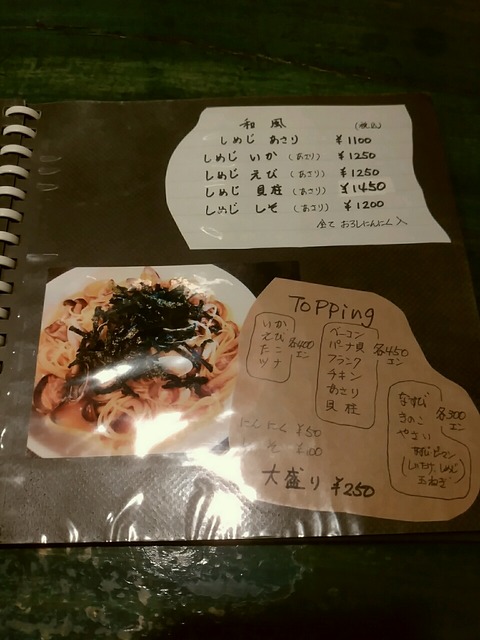 和風 (税込)
しめじ あさり ¥1100
しめじ いか (あさり) ¥1250
しめじ えび (あさり) ¥1250
しめじ 貝柱 (あさり) ¥1450
しめじ しそ (あさり) ¥1200
全て おろしにんにく入
TOPPing
いか
えび
たこ
ツナ
各400
エン
ベーコン
パーナ貝
フランク
チキン
あさり
貝柱
各450
エン
なすび
きのこ
やさい
各300
エン
玉ねぎ
にんにく ¥50
そ ¥100
大盛り ¥250